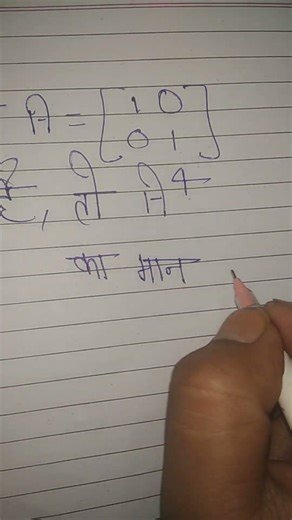 A = [1 0
0 1]
है, तो A⁴
का मान